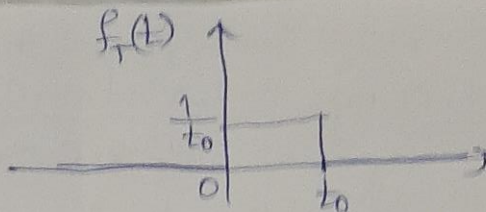 f_T(t)
1/t₀
0 t₀